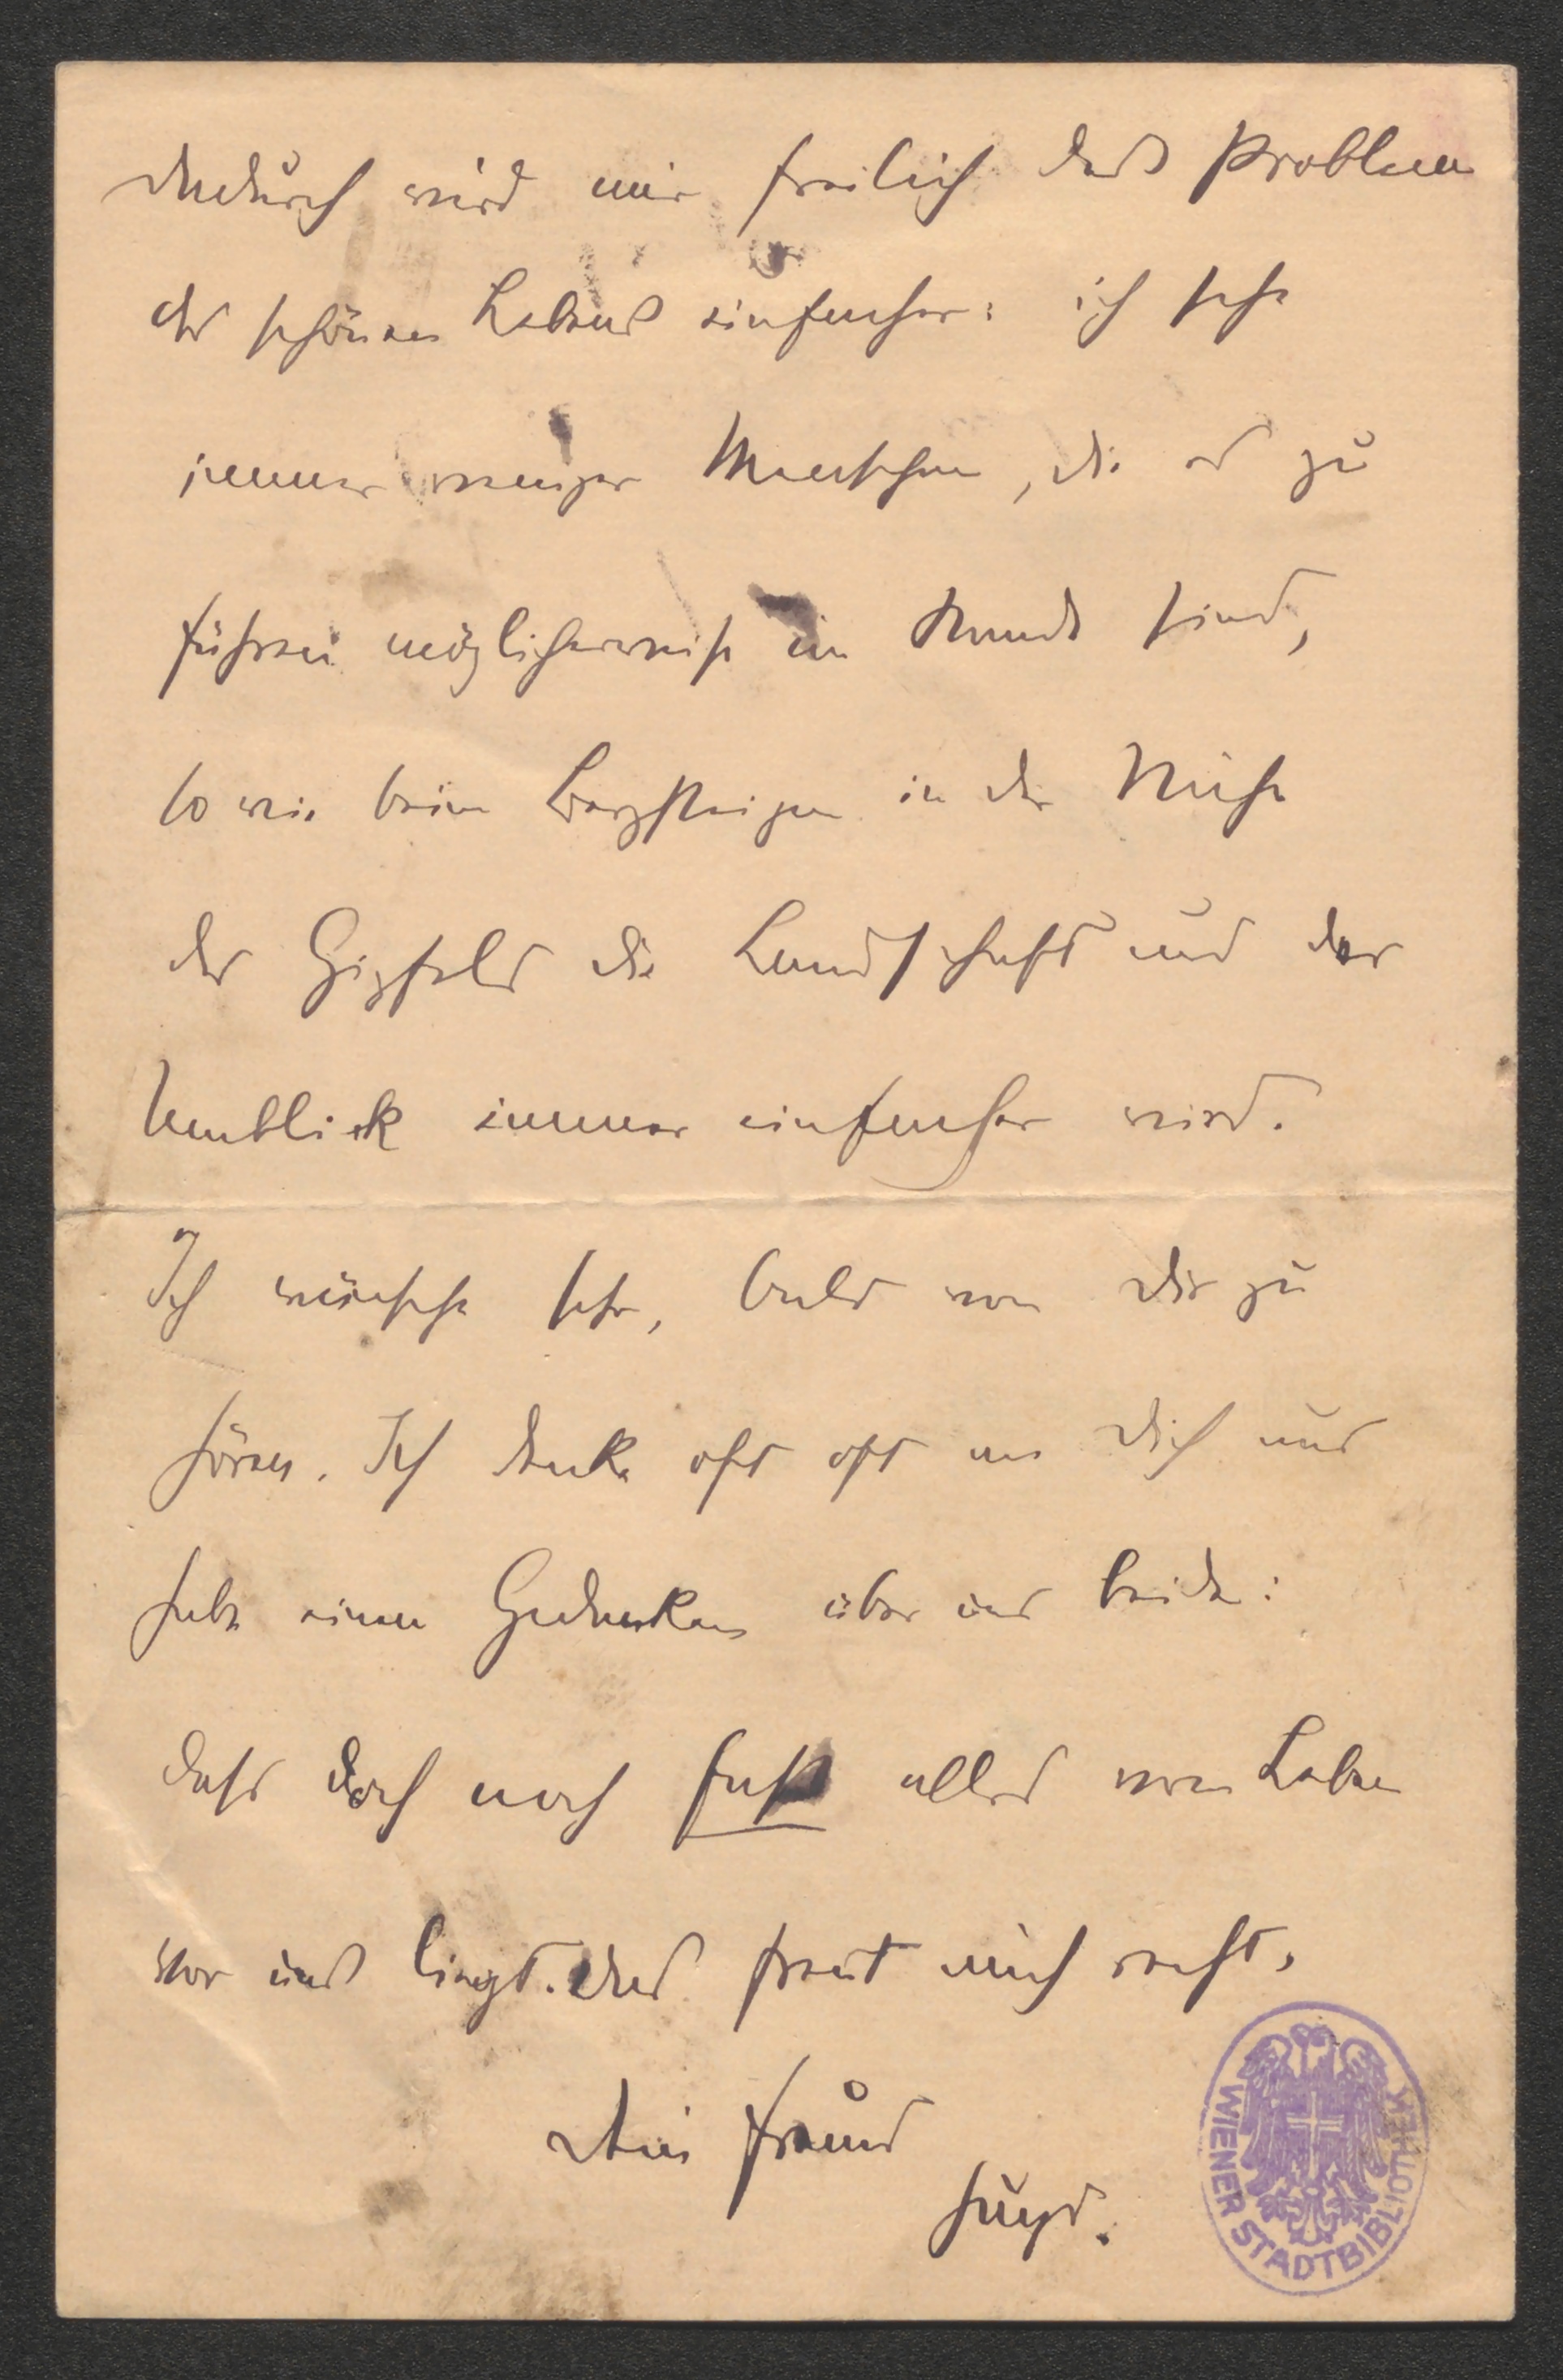 Dadurch wird mir freilich das Problem
des schönen Lebens einfacher: ich sehe
immer weniger Menschen, die es zu
führen möglicherweise im Stande sind,
so wie beim Bergsteigen in der Nähe
des Gipfels die Landschaft und der
Umblick immer einfacher wird.
Ich wünsche sehr, bald von Dir zu
hören. Ich denke oft oft an Dich und
habe einen Gedanken über uns beide:
dass doch noch fast alles vom Leben
vor uns liegt. Das freut mich recht.
Dein Freund
Hugo.
WIENER STADTBIBLIOTHEK